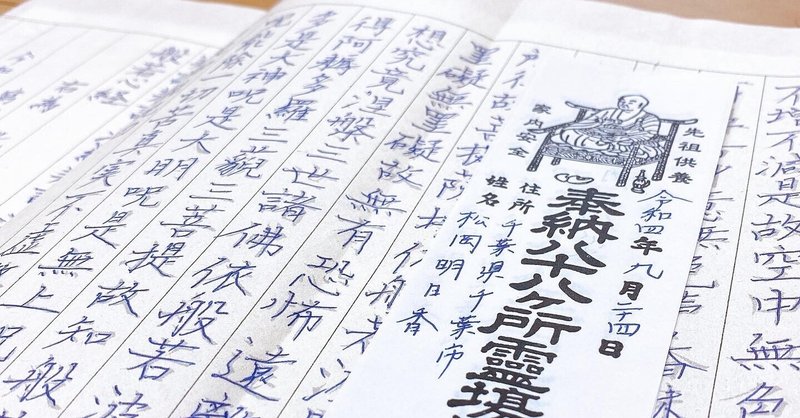 不増不減是故空中無色
意無色声香味
先祖供養
家内安全
令和四年九月二十四日
奉納八十八ヶ所靈場
住所 千葉県千葉市
姓名 松岡明日香
罣礙無罣礙故無有恐怖遠離
想究竟涅槃三世諸佛依般若波
得阿耨多羅三藐三菩提故知般
多是大神呪是大明呪是無上呪
呪能除一切苦真実不虚